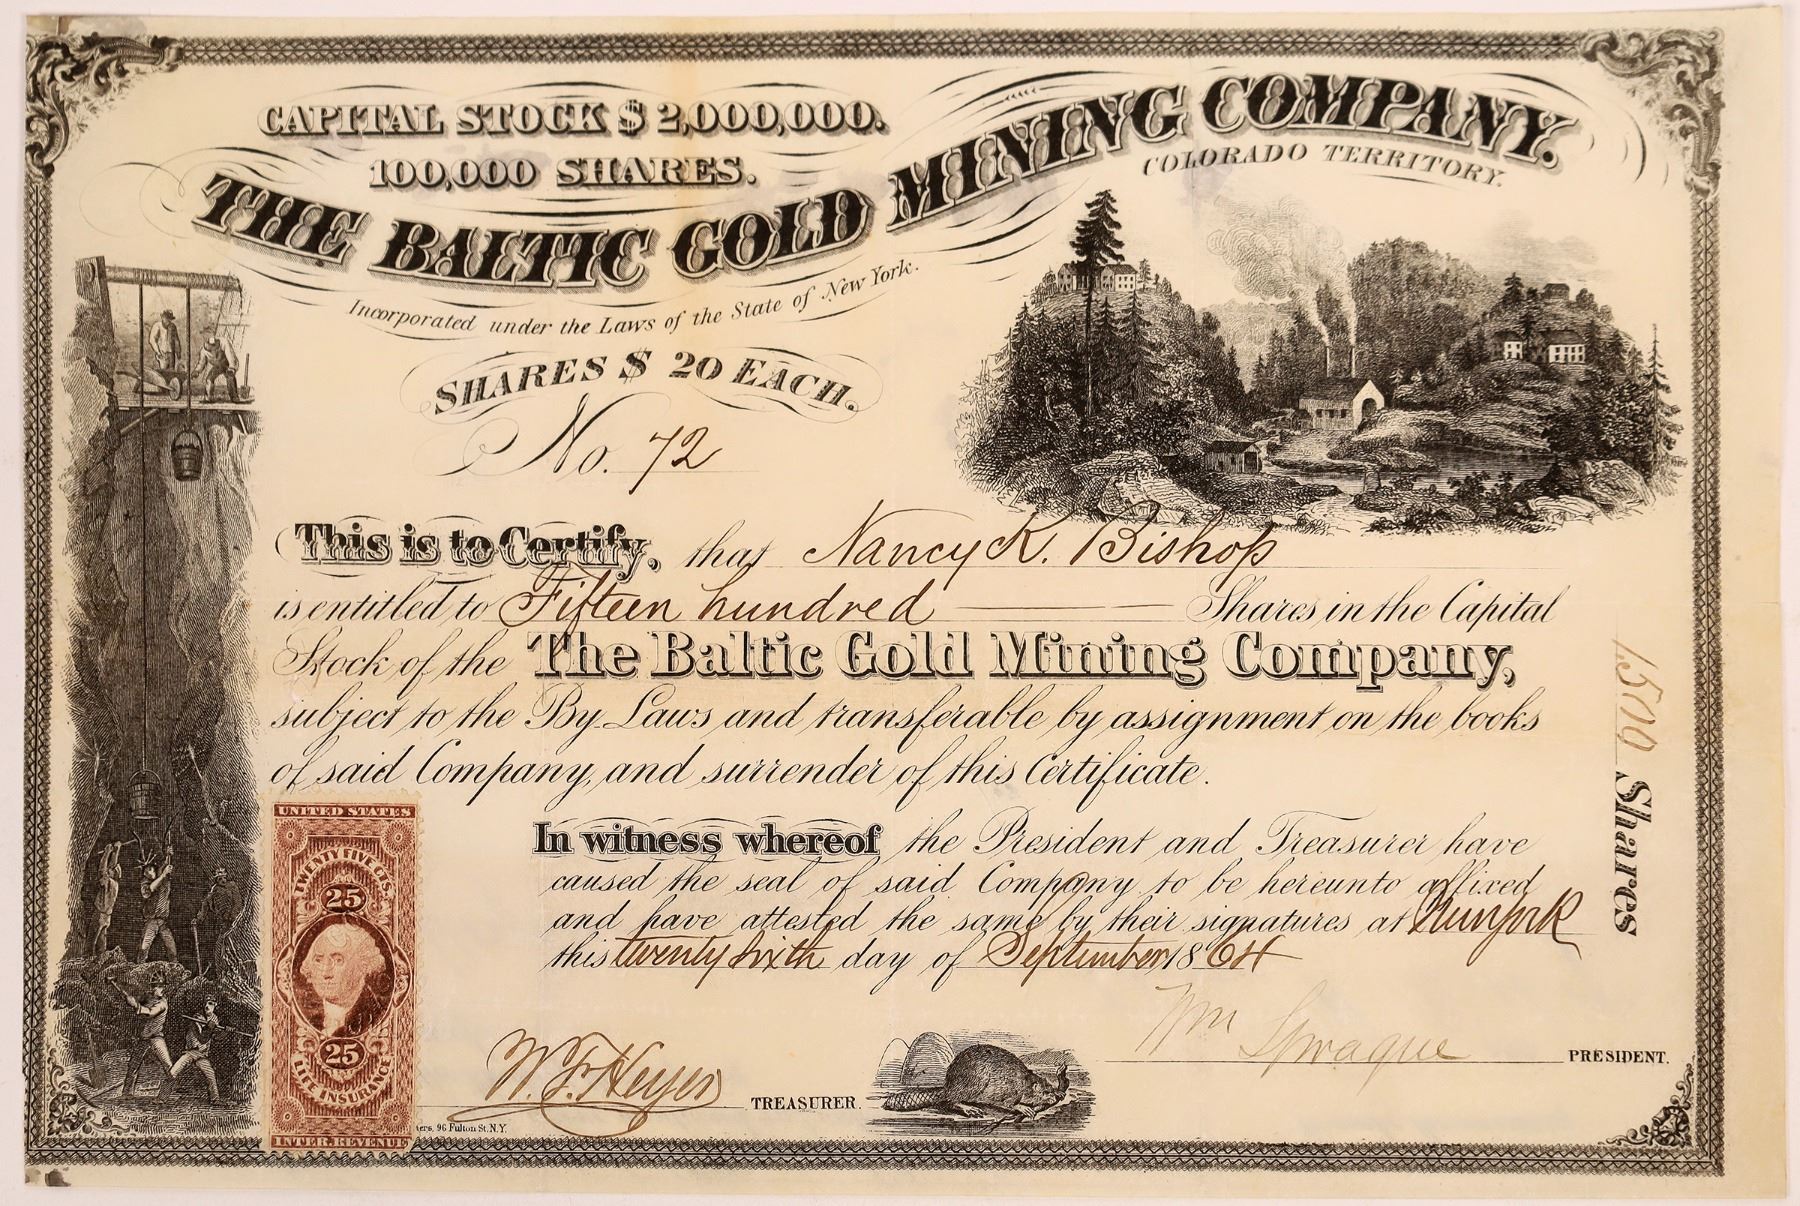 CAPITAL STOCK $ 2,000,000.
100,000 SHARES.
THE BALTIC GOLD MINING COMPANY.
COLORADO TERRITORY.
Incorporated under the Laws of the State of New York.
SHARES $ 20 EACH.
No. 72
This is to Certify, that Nancy K. Bishop
is entitled to Fifteen hundred Shares in the Capital
Stock of the The Baltic Gold Mining Company,
subject to the By-Laws and transferable by assignment on the books
of said Company, and surrender of this Certificate.
1500 Shares
In witness whereof the President and Treasurer have
caused the seal of said Company to be hereunto affixed
and have attested the same by their signatures at New York
this twenty sixth day of September 1864
UNITED STATES
TWENTY FIVE CTS.
25
25
LIFE INSURANCE
INTER. REVENUE
Wm Sprague PRESIDENT.
W. F. Heyer TREASURER.
96 Fulton St. N.Y.